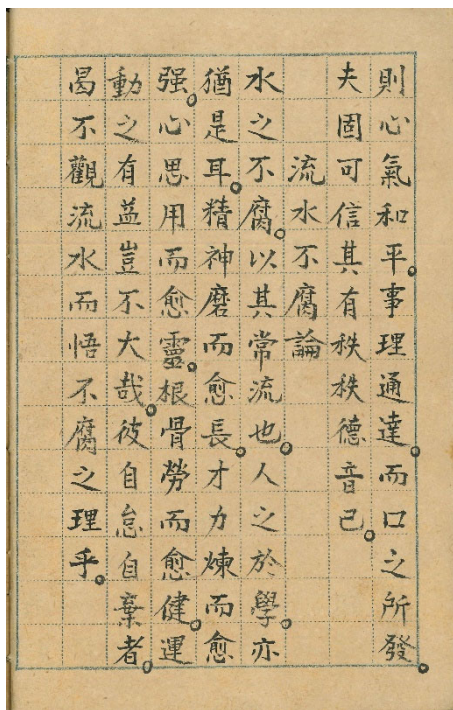 則心氣和平。事理通達。而口之所發。
夫固可信其有秩秩德音已。
流水不腐論
水之不腐。以其常流也。人之於學。亦
猶是耳。精神磨而愈長。才力煉而愈
强。心思用而愈靈。根骨勞而愈健。運
動之有益豈不大哉。彼自怠自棄者。
曷不觀流水而悟不腐之理乎。